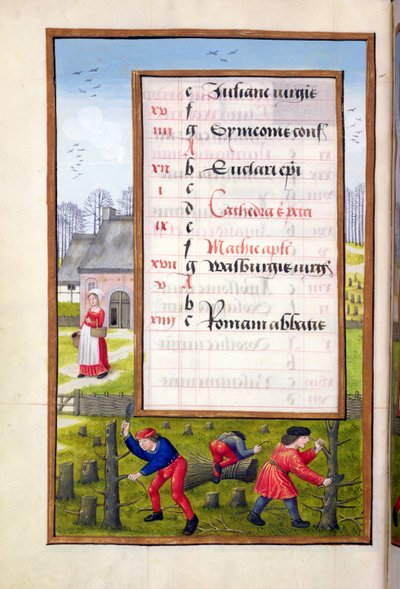 e Juliane virgis
xv f
iiii g Symeonis conf
A
xii b Eucharii epi
i c
d Cathedra s petri
ix e
f Mathie apli
xvii g Walburgis virgis
A
b
xiiii c Romani abbatis